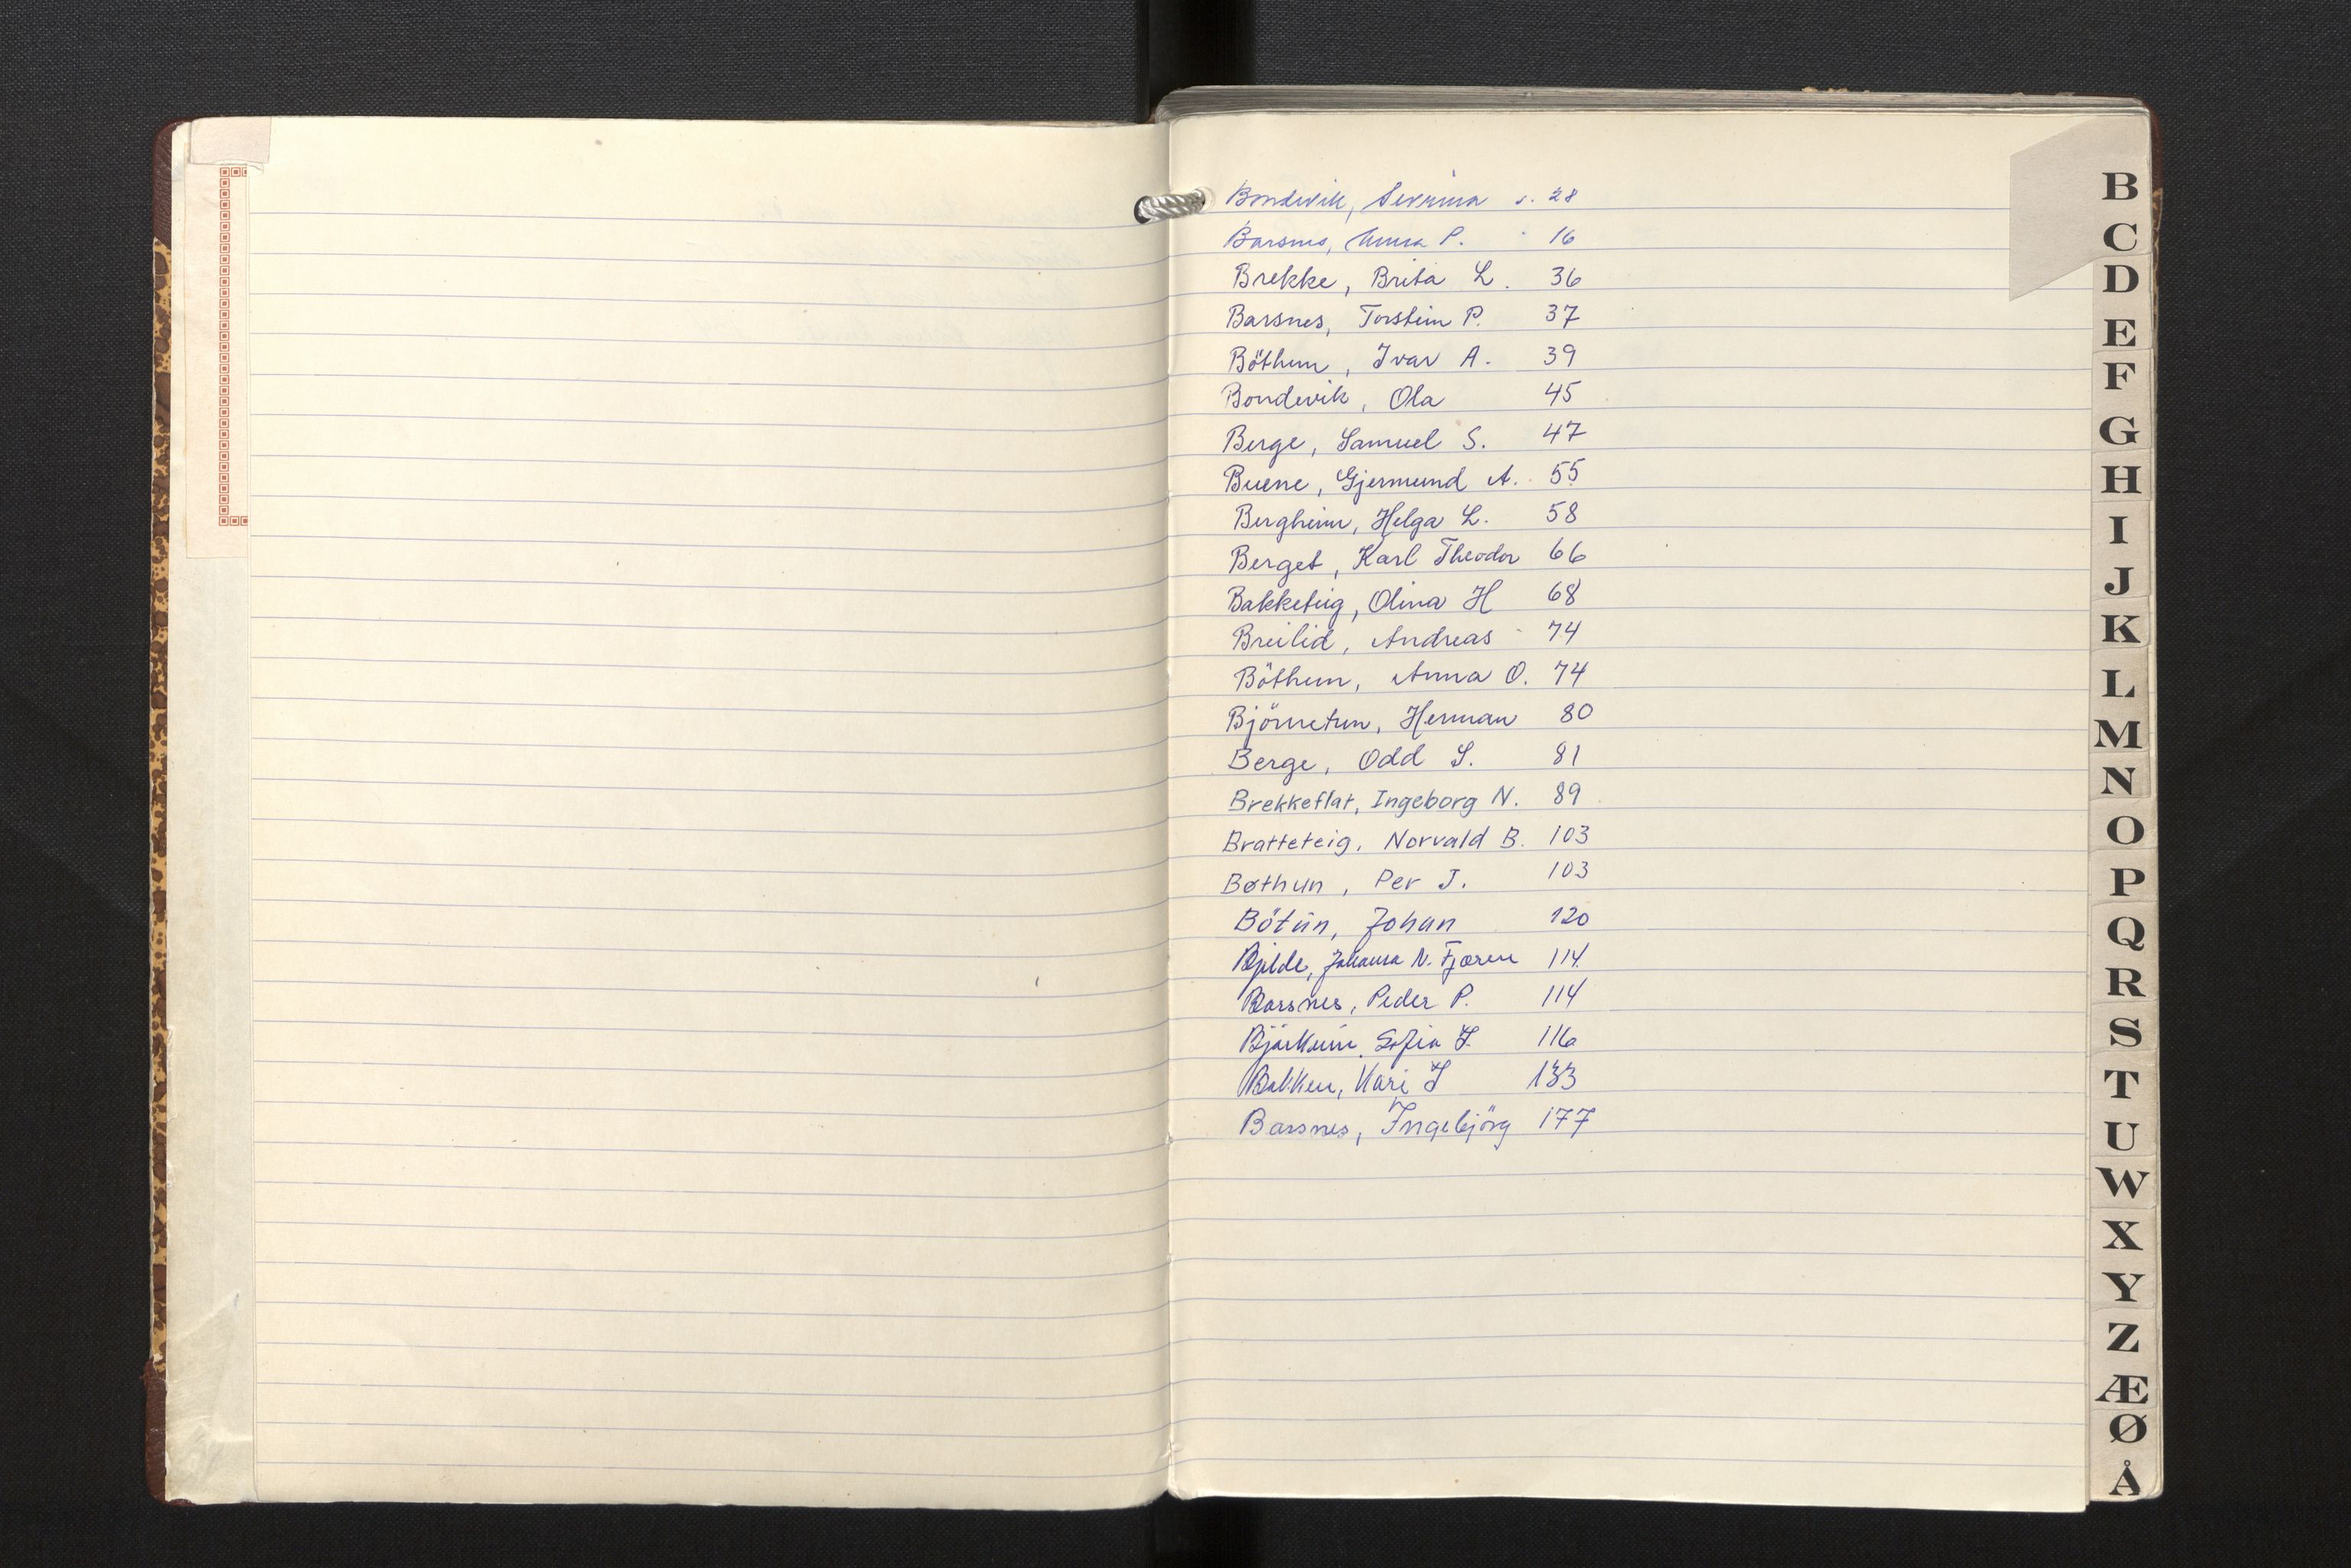 Bondevik, Severina s. 28
Barsnes, Anna P. 16
Brekke, Brita L. 36
Barsnes, Torstein P. 37
Böthun, Ivar A. 39
Bondevik, Ola 45
Berge, Samuel S. 47
Buene, Gjermund A. 55
Bergheim, Helga L. 58
Berget, Karl Theodor 66
Bakketeig, Olina H 68
Breilid, Andreas 74
Böthun, Anna O. 74
Björnetun, Herman 80
Berge, Odd S. 81
Brekkeflat, Ingeborg N. 89
Bratteteig, Norvald B. 103
Bøthun, Per J. 103
Bötun, Johan 120
Bjelde, Johanna N. Fjæren 114
Barsnes, Peder P. 114
Sofia J. 116
Bakken, Kari J 133
Barsnes, Ingebjörg 177
B
C
D
E
F
G
H
I
J
K
L
M
N
O
P
Q
R
S
T
U
W
X
Y
Z
Æ
Ø
Å